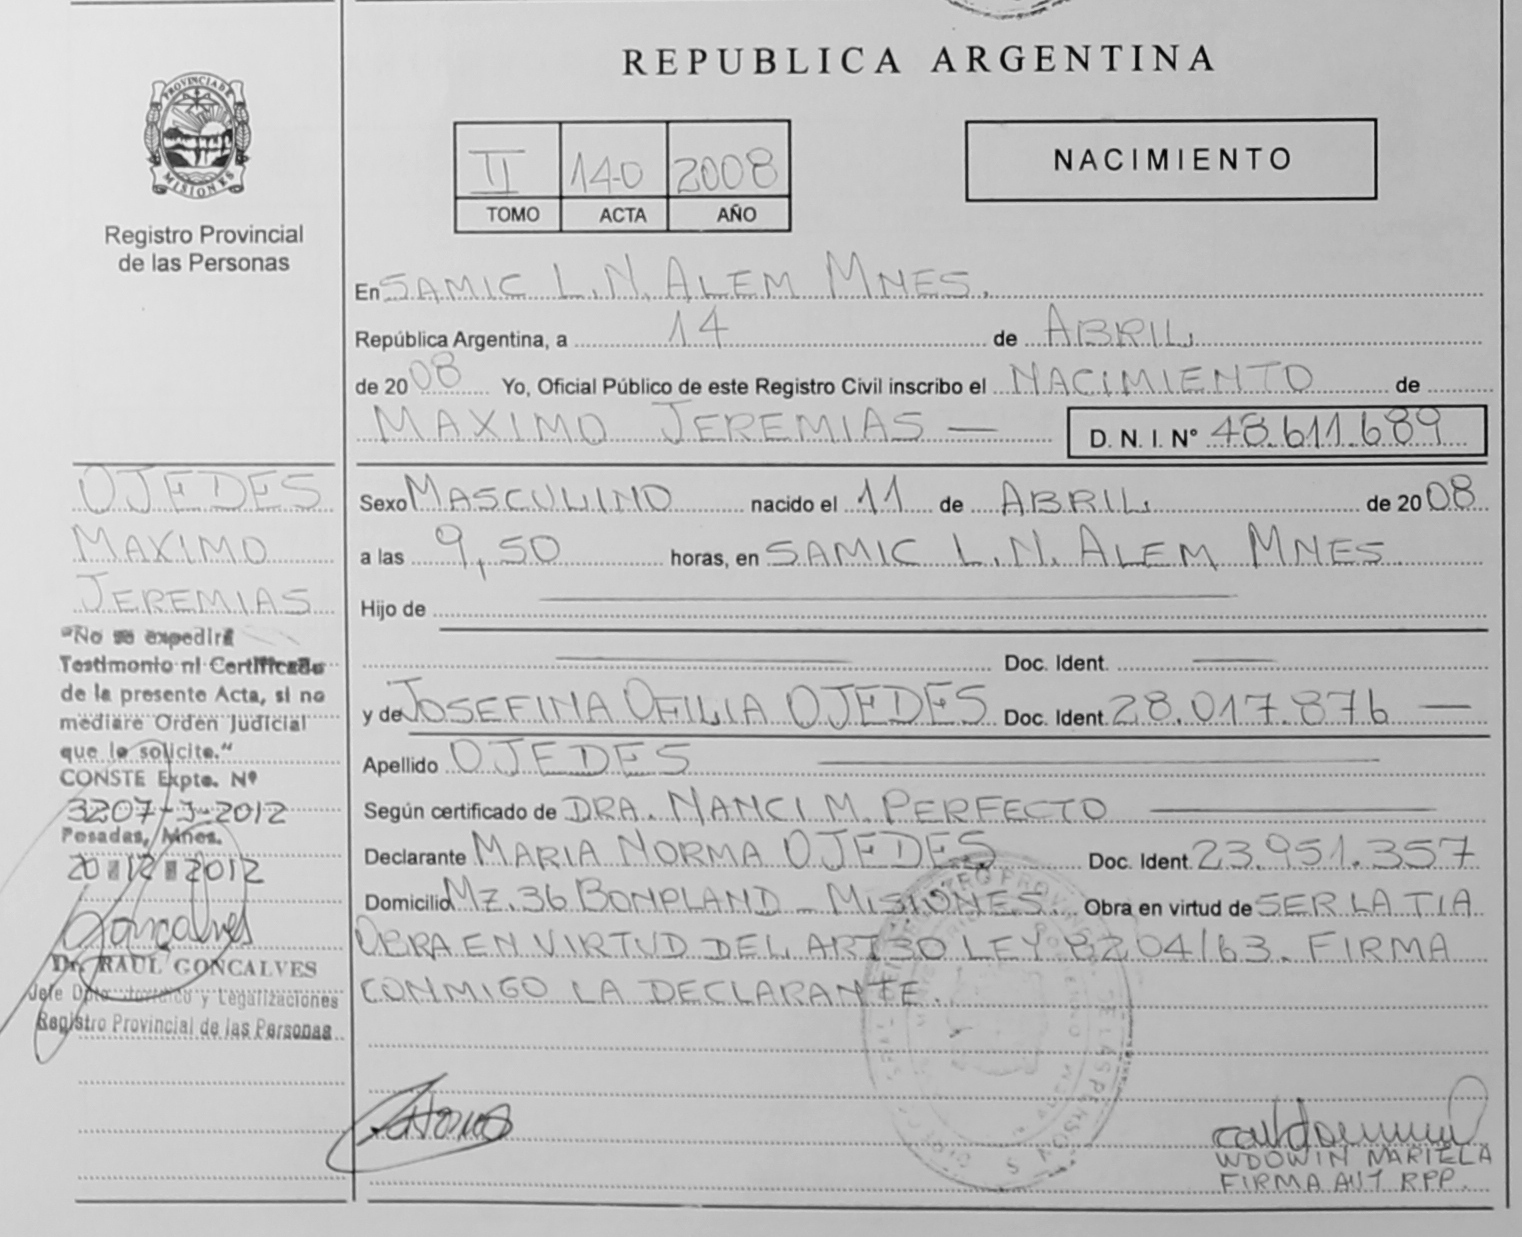 REPUBLICA ARGENTINA
PROVINCIA DE
MISIONES
Registro Provincial
de las Personas
II 140 2008
TOMO ACTA AÑO
NACIMIENTO
En SAMIC L.N. ALEM MNES.
República Argentina, a 14 de ABRIL
de 2008 Yo, Oficial Público de este Registro Civil inscribo el NACIMIENTO de
MAXIMO JEREMIAS — D. N. I. Nº 48.611.689
OJEDES
MAXIMO
JEREMIAS
"No se expedirá
Testimonio ni Certificado
de la presente Acta, si no
mediare Orden Judicial
que lo solicite."
CONSTE Expte. Nº
3207-J-2012
Posadas, Mnes.
20 12 2012
Goncalves
Dr. RAUL GONCALVES
Jefe Dpto. Jurídico y Legalizaciones
Registro Provincial de las Personas
Sexo MASCULINO nacido el 11 de ABRIL de 2008
a las 9,50 horas, en SAMIC L.N. ALEM MNES
Hijo de
Doc. Ident.
y de JOSEFINA OFILIA OJEDES Doc. Ident. 28.017.876 —
Apellido OJEDES
Según certificado de DRA. NANCI M. PERFECTO
Declarante MARIA NORMA OJEDES Doc. Ident. 23.951.357
Domicilio MZ. 36 BONPLAND - MISIONES Obra en virtud de SER LA TIA
OBRA EN VIRTUD DEL ART 30 LEY 8204/63. FIRMA
CONMIGO LA DECLARANTE.
WDOWIN MARIELA
FIRMA AUT RPP.